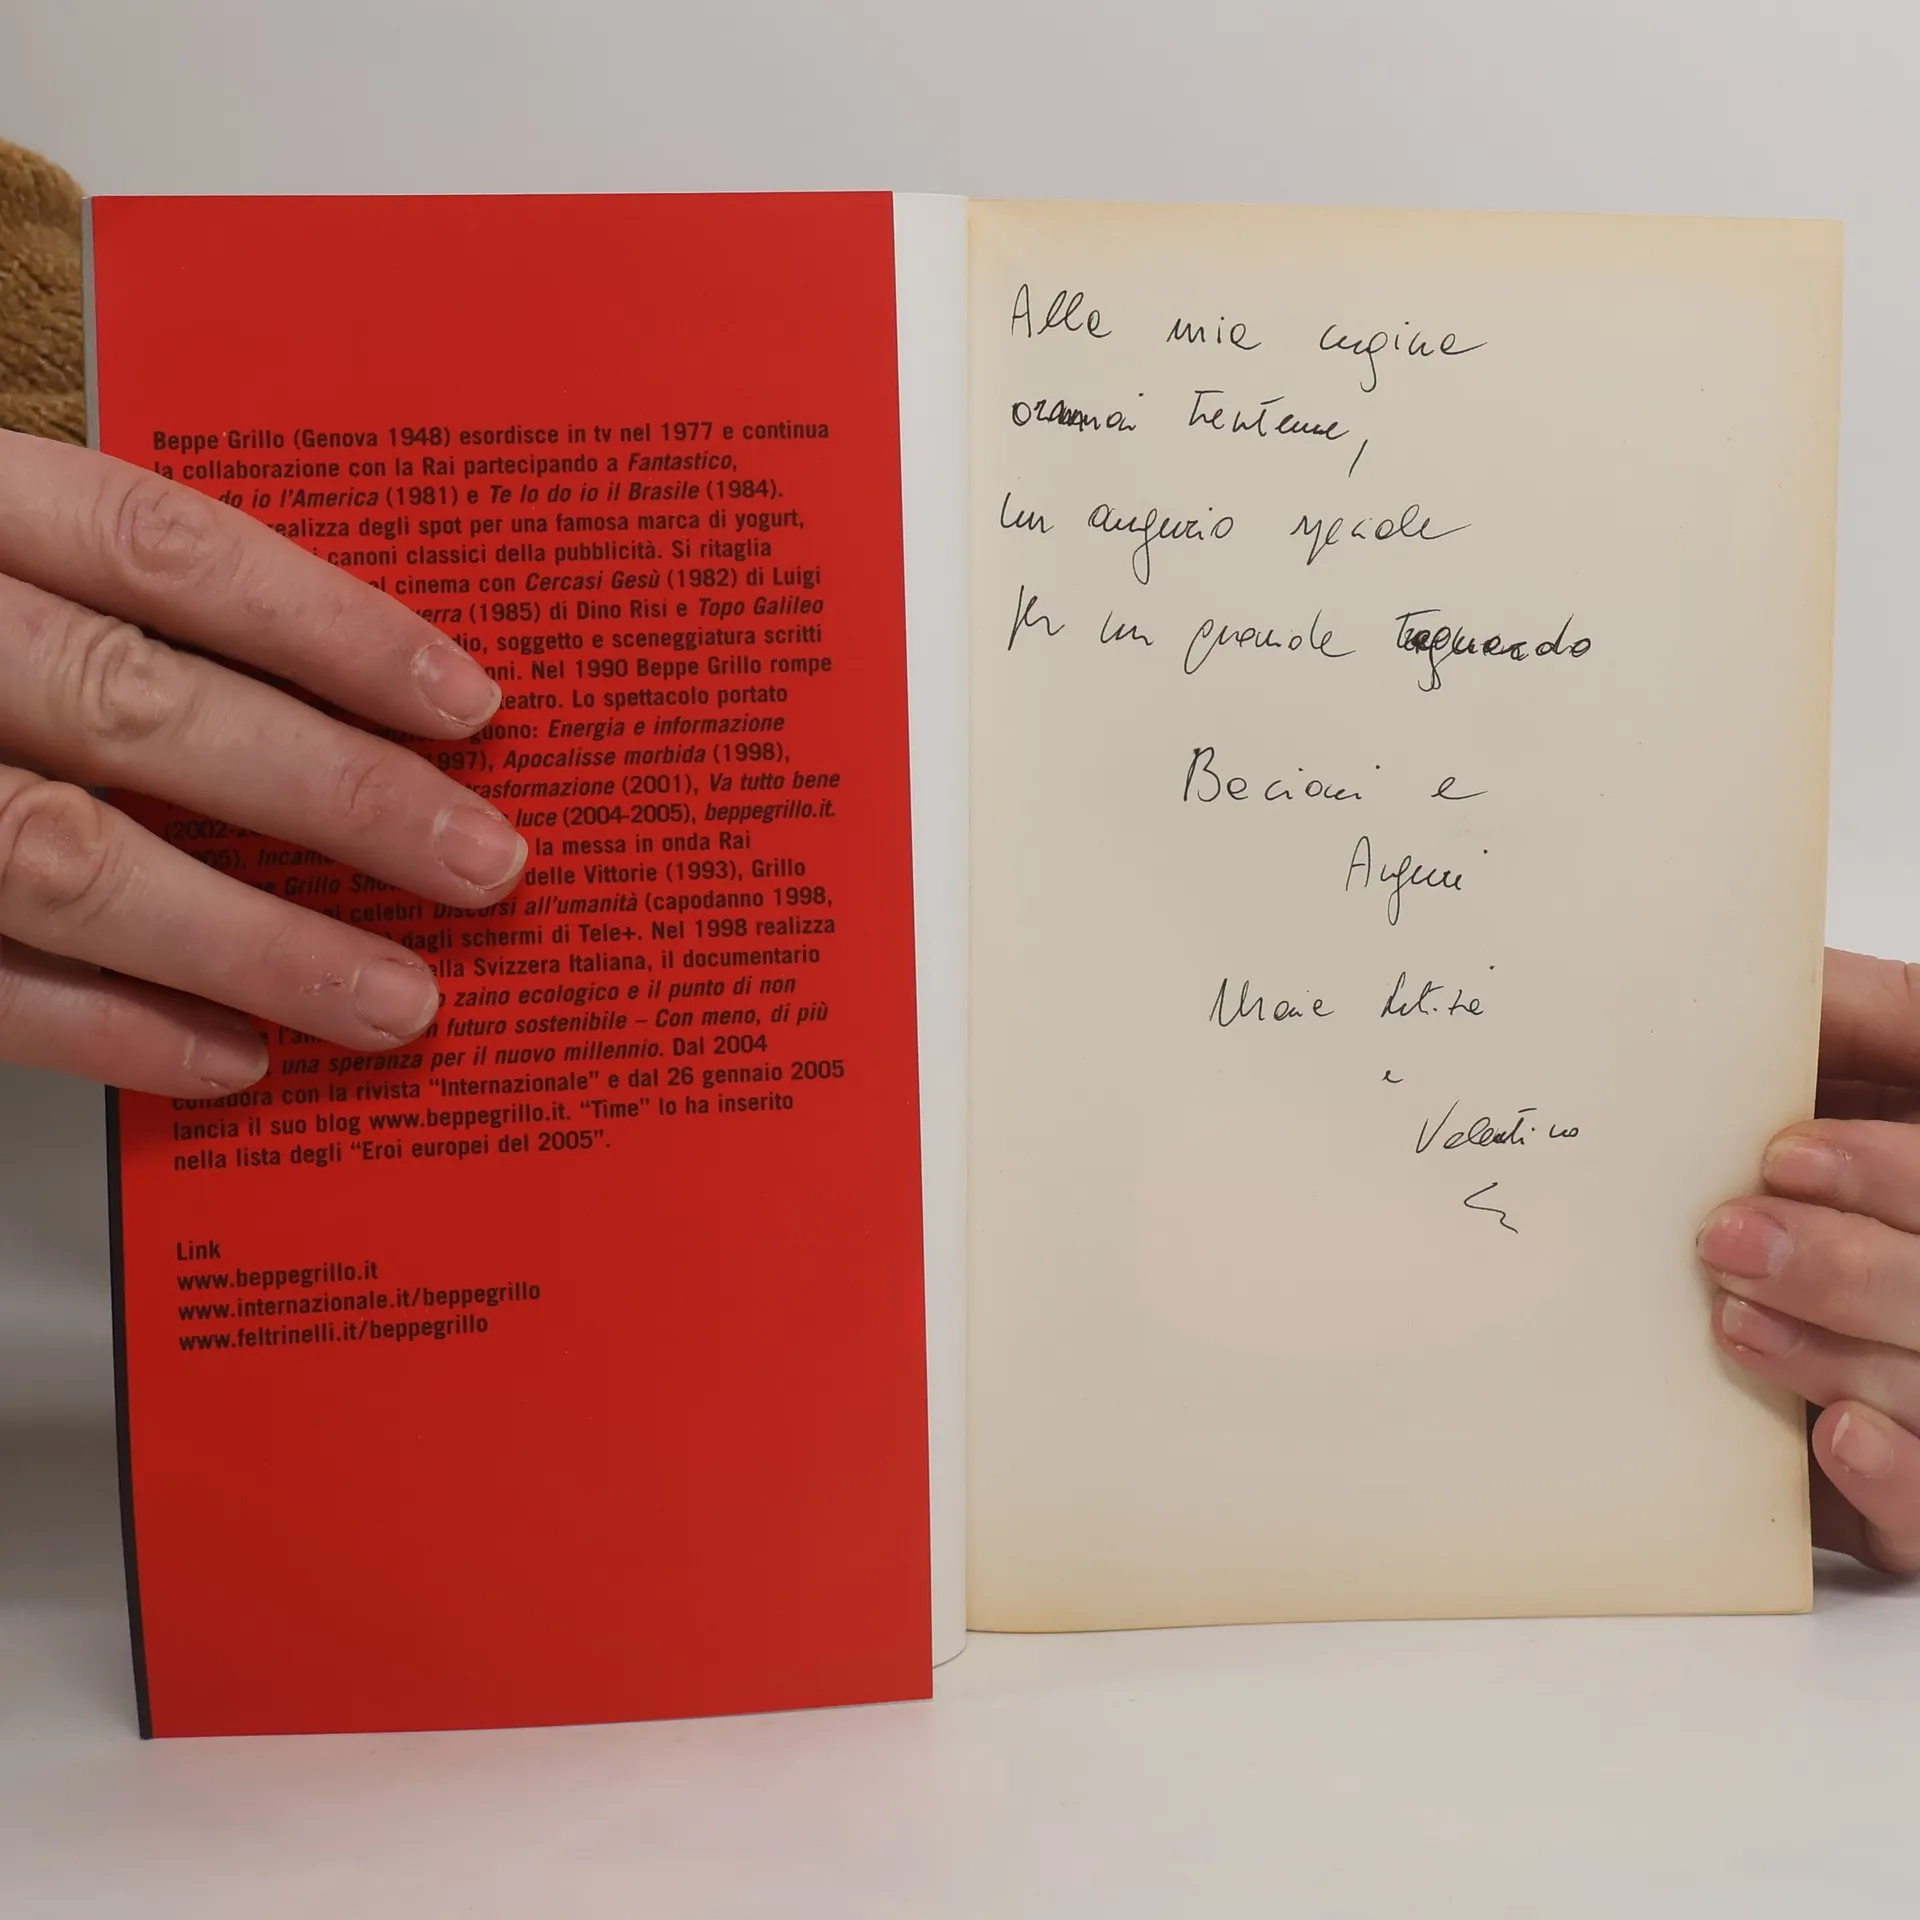 Beppe Grillo (Genova 1948) esordisce in tv nel 1977 e continua
la collaborazione con la Rai partecipando a Fantastico,
do io l'America (1981) e Te lo do io il Brasile (1984).
realizza degli spot per una famosa marca di yogurt,
i canoni classici della pubblicità. Si ritaglia
al cinema con Cercasi Gesù (1982) di Luigi
erra (1985) di Dino Risi e Topo Galileo
dio, soggetto e sceneggiatura scritti
nni. Nel 1990 Beppe Grillo rompe
teatro. Lo spettacolo portato
guono: Energia e informazione
1997), Apocalisse morbida (1998),
trasformazione (2001), Va tutto bene
(2002- luce (2004-2005), beppegrillo.it.
2005), Incant la messa in onda Rai
pe Grillo Show delle Vittorie (1993), Grillo
ni celebri Discorsi all'umanità (capodanno 1998,
dagli schermi di Tele+. Nel 1998 realizza
ella Svizzera Italiana, il documentario
o zaino ecologico e il punto di non
e l'an n futuro sostenibile – Con meno, di più
una speranza per il nuovo millennio. Dal 2004
collabora con la rivista "Internazionale" e dal 26 gennaio 2005
lancia il suo blog www.beppegrillo.it. "Time" lo ha inserito
nella lista degli "Eroi europei del 2005".
Link
www.beppegrillo.it
www.internazionale.it/beppegrillo
www.feltrinelli.it/beppegrillo
Alla mia cugina
oramai trentenne,
un augurio speciale
per un grande traguardo
Bacioni e
Auguri
Maria Letizia
e
Valentino